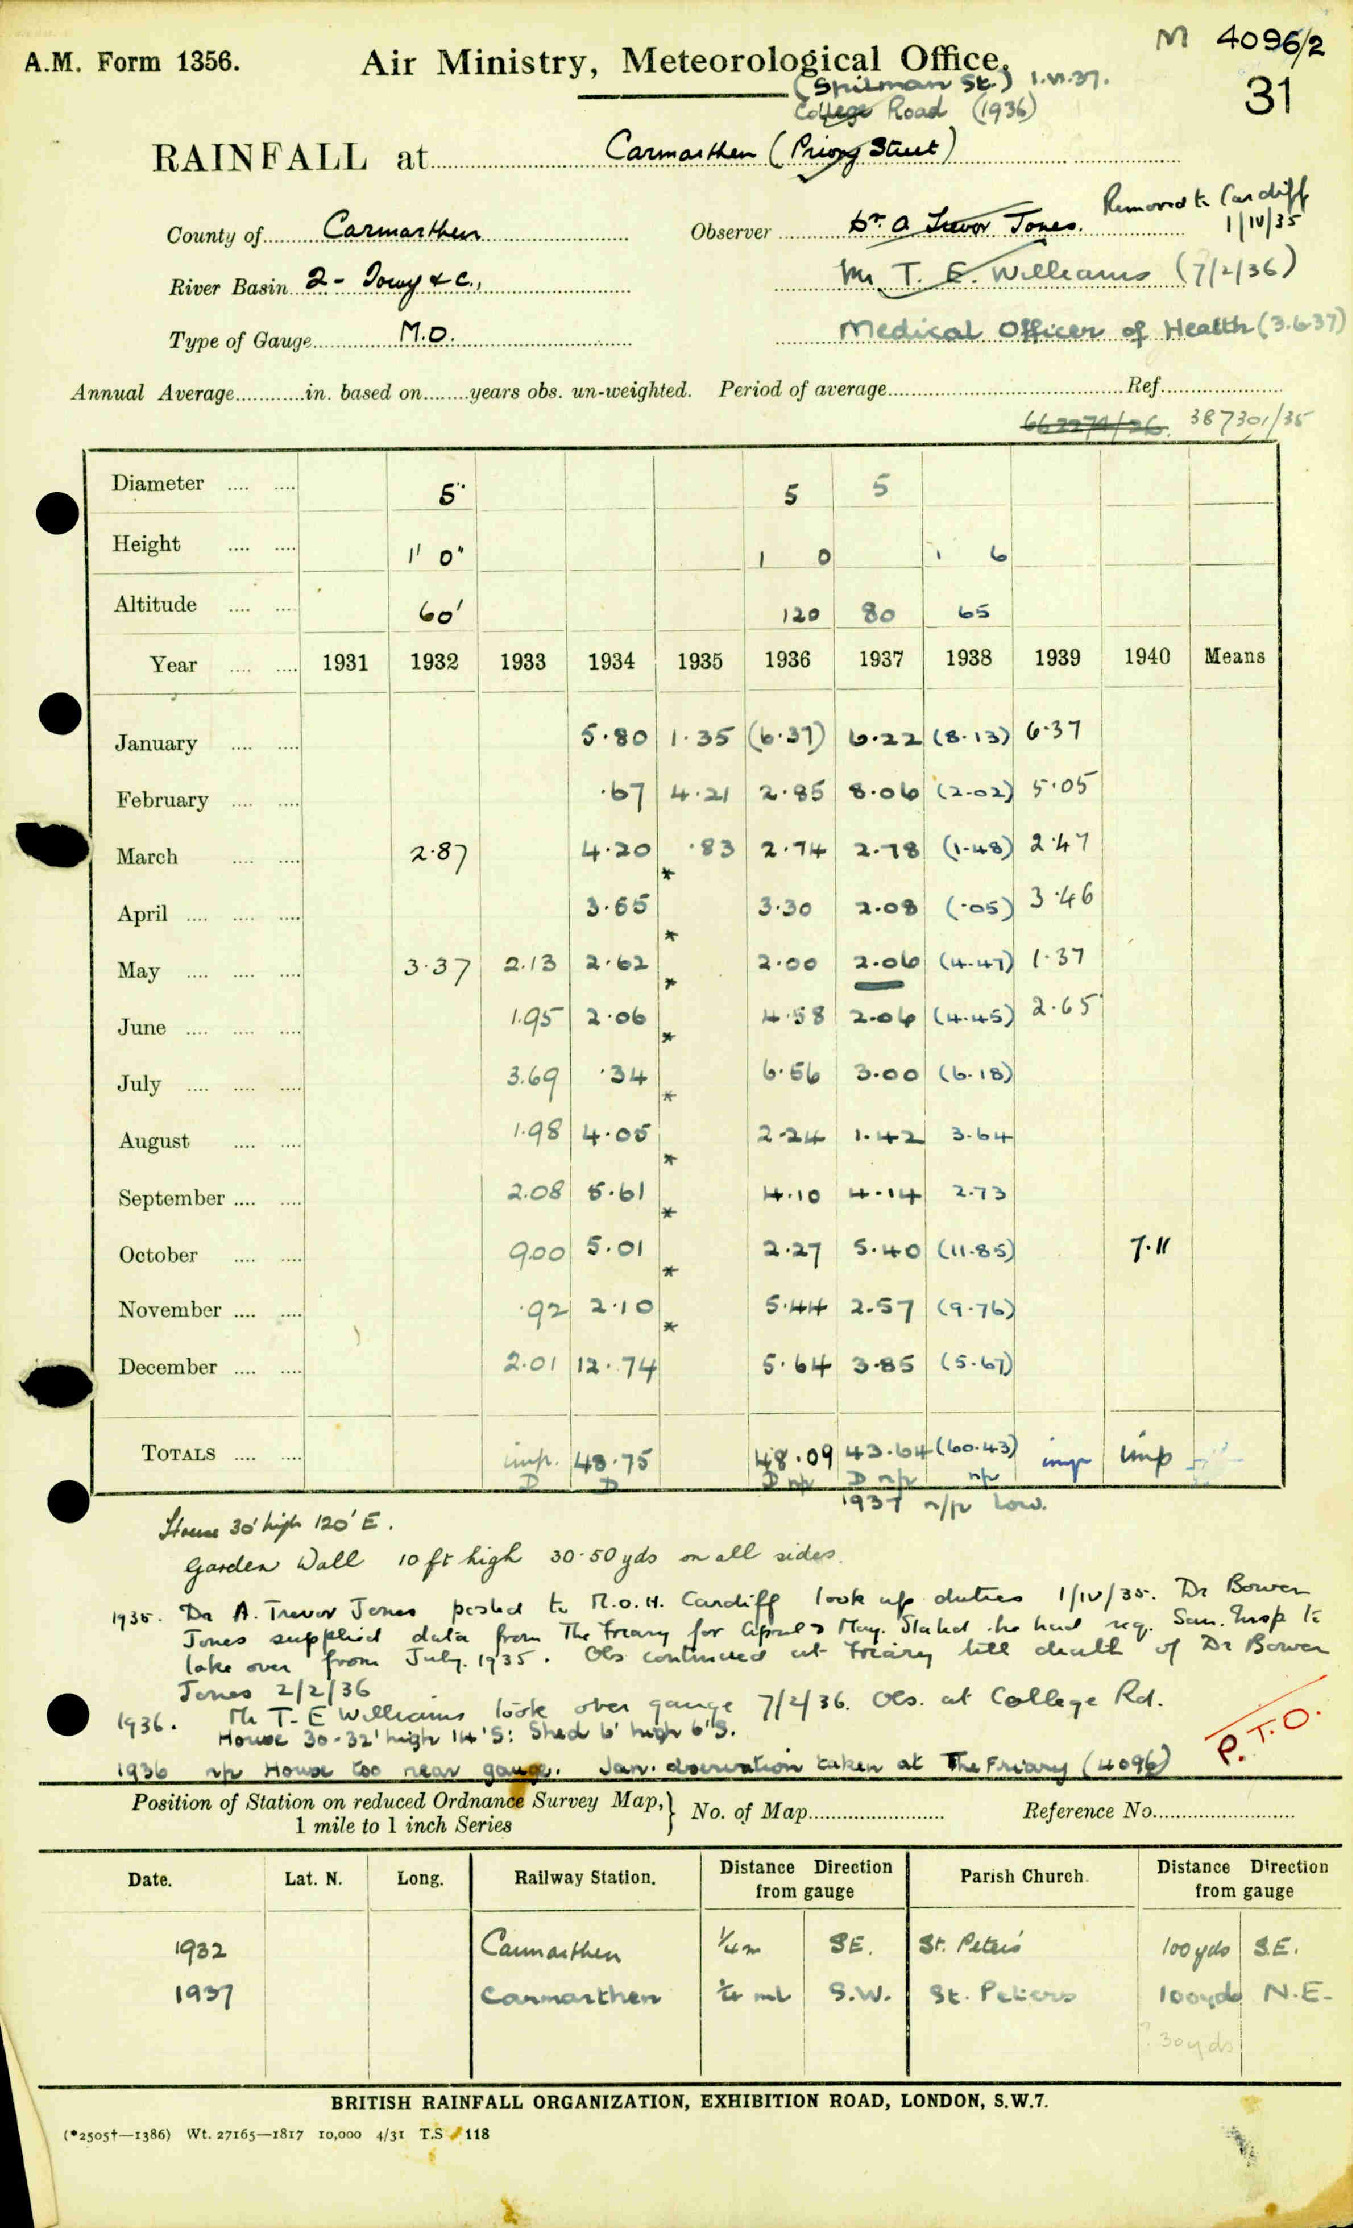 M 4096/2
A.M. Form 1356. Air Ministry, Meteorological Office.
31
(Spilman St.) 1.VI.37.
College Road (1936)
RAINFALL at Carmarthen (Priory Street)
County of Carmarthen Observer Dr. A Trevor Jones. Removed to Cardiff 1/IV/35
River Basin 2 - Towy & c., Mr T. E. Williams (7/2/36)
Type of Gauge M.O. Medical Officer of Health (3.6.37)
Annual Average............in. based on........years obs. un-weighted. Period of average........Ref........
662274/26. 387301/35
Diameter .... .... 5" 5 5
Height .... .... 1' 0" 1 0 1 6
Altitude .... .... 60' 120 80 65
Year .... .... 1931 1932 1933 1934 1935 1936 1937 1938 1939 1940 Means
January .... .... 5.80 1.35 (6.37) 6.22 (8.13) 6.37
February .... .... .67 4.21 2.85 8.06 (2.02) 5.05
March .... .... 2.87 4.20 .83 2.74 2.78 (1.48) 2.47
April .... .... .... 3.55 * 3.30 2.08 (.05) 3.46
May .... .... .... 3.37 2.13 2.62 * 2.00 2.06 (4.47) 1.37
June .... .... .... 1.95 2.06 * 4.58 2.06 (4.45) 2.65
July .... .... .... 3.69 .34 * 6.56 3.00 (6.18)
August .... .... 1.98 4.05 * 2.24 1.42 3.64
September .... .... 2.08 5.61 * 4.10 4.14 2.73
October .... .... 9.00 5.01 * 2.27 5.40 (11.85) 7.11
November .... .... .92 2.10 * 5.44 2.57 (9.76)
December .... .... 2.01 12.74 * 5.64 3.85 (5.67)
TOTALS .... .... imp. 48.75 48.09 43.64 (60.43) imp imp
D D D n/p D n/p n/p
1937 n/p Low.
House 30' high 120' E.
Garden Wall 10 ft high 30-50 yds on all sides.
1935. Dr A. Trevor Jones posted to M.O.H. Cardiff took up duties 1/IV/35. Dr Bowen
Jones supplied data from The Friary for April & May. Stated he had req. San. Insp to
take over from July. 1935. Obs continued at Friary till death of Dr Bowen
Jones 2/2/36
1936. Mr T. E Williams took over gauge 7/2/36. Obs. at College Rd.
House 30-32' high 14'S: Shed 6' high 6'S.
P.T.O.
1936 n/p House too near gauge. Jan. observation taken at The Friary (4096)
Position of Station on reduced Ordnance Survey Map, 1 mile to 1 inch Series } No. of Map........ Reference No........
Date. Lat. N. Long. Railway Station. Distance Direction from gauge Parish Church. Distance Direction from gauge
1932 Carmarthen 1/4 m SE. St. Peter's 100 yds S.E.
1937 Carmarthen 1/4 ml S.W. St. Peters 100 yds N.E.
? 30 yds
BRITISH RAINFALL ORGANIZATION, EXHIBITION ROAD, LONDON, S.W.7.
(*2505†—1386) Wt. 27165—1817 10,000 4/31 T.S 118